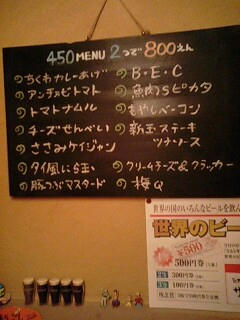 450 MENU 2つで800えん
ちくわカレーあげ
アンチョビトマト
トマトナムル
チーズせんべい
ささみケイジャン
タイ風に玉
豚つぶマスタード
B・E・C
魚肉Sピカタ
もやしベーコン
新玉ステーキ
ツナ・ソース
クリームチーズ&クラッカー
梅Q
世界の国のいろんなビールを飲ん
世界のビー
¥500
500円券
2等 300円券
3等 100円券